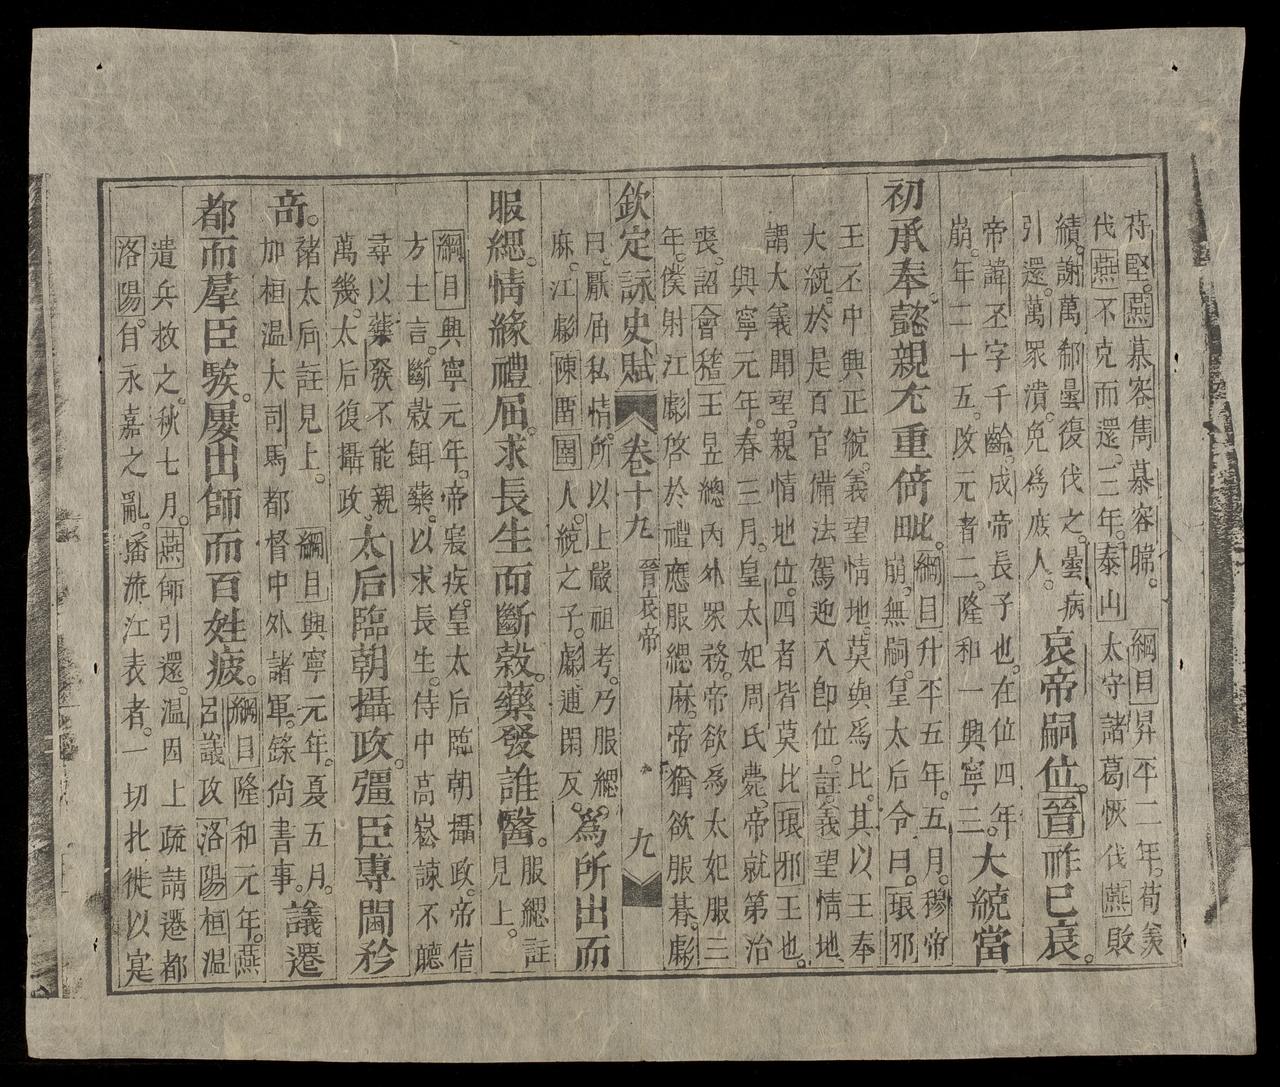 苻堅。燕慕容雋慕容暐。綱目昇平二年。荀羨
伐燕不克而還。三年。泰山太守諸葛恢伐燕敗
績。謝萬郗曇復伐之。曇病
引還。萬眾潰。免爲庶人。
哀帝嗣位。晉祚已衰。
帝諱丕字千齡。成帝長子也。在位四年。
崩。年二十五。改元者二。隆和一興寧三。
大統當
初承奉。懿親允重倚毗。
綱目升平五年。五月。穆帝
崩。無嗣。皇太后令曰。琅邪
王丕中興正統。義望情地。莫與爲比。其以王奉
大統。於是百官備法駕迎入即位。註義望情地
謂大義聞望。親情地位。四者皆莫比琅邪王也。
興寧元年。春三月。皇太妃周氏薨。帝就第治
喪。詔會稽王昱總內外眾務。帝欲爲太妃服三
年。僕射江彪啓於禮應服緦麻。帝猶欲服朞。彪
欽定詠史賦 卷十九 晉哀帝 九
曰。厭屈私情。所以上嚴祖考。乃服緦。
麻。江彪陳留圉人。統之子。彪逋閑反。
爲所出而
服緦。情緣禮屈。求長生而斷穀。藥發誰醫。
服緦註
見上。
綱目興寧元年。帝寢疾。皇太后臨朝攝政。帝信
方士言。斷穀餌藥。以求長生。侍中高崧諫不聽
尋以藥發不能親
萬幾。太后復攝政。
太后臨朝攝政。彊臣專閫矜
奇。
褚太后註見上。綱目興寧元年。夏五月。
加桓温大司馬都督中外諸軍。錄尚書事。
議遷
都而羣臣駭。屢出師而百姓疲。
綱目隆和元年。燕
呂議攻洛陽桓温
遣兵救之。秋七月。燕師引還。温因上疏請遷都
洛陽。自永嘉之亂。播流江表者。一切北徙以寔